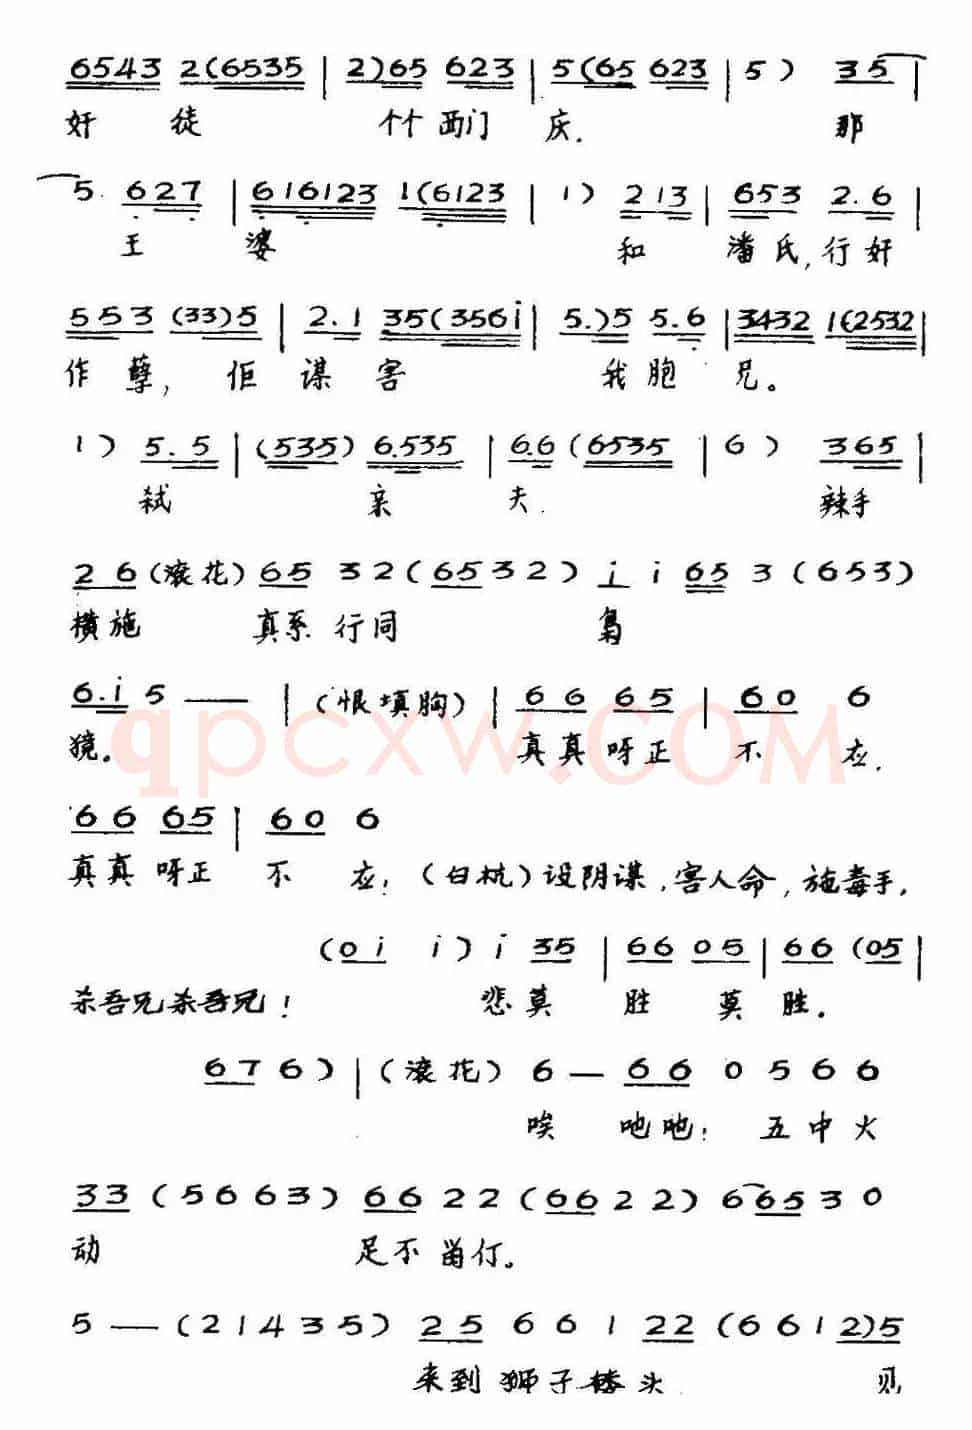 6543 2(6535 | 2)65 623 | 5(65 623 | 5 ) 35 |
奸 徒 个个 西门 庆. 那
5. 627 | 616123 1(6123 | 1 ) 213 | 653 2.6 |
王 婆 和 潘氏, 行奸
553 (33)5 | 2.1 35(356i | 5.)5 5.6 | 3432 1(2532 |
作孽, 佢 谋 害 我胞 兄。
1 ) 5.5 | (535) 6.535 | 6.6 (6535 | 6 ) 365 |
弑 亲 夫. 辣手
26 (滚花) 65 32 (6532) i i 65 3 (653)
横施 真系 行同 枭
6.i 5 —— | (恨填胸) | 66 65 | 60 6
獍。 真真 呀正 不 应.
qpcxw.COM
66 65 | 60 6
真真 呀正 不 应; (白杭) 设阴谋, 害人命, 施毒手,
(0i i) i 35 | 66 05 | 66 (05 |
杀吾兄杀吾兄! 悲莫 胜 莫胜.
676) | (滚花) 6 — 66 0 5 6 6
唉 吔吔; 五中火
33 (5663) 66 22 (6622) 66530
动 足不 留仃。
5 — (21435) 25 6 6 1 22 (6612)5
来到 狮子 桥头 见